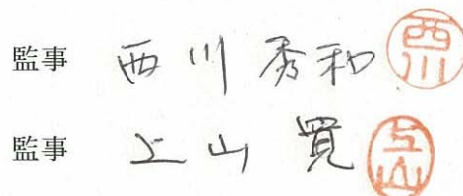 監事 西川秀和 西川
監事 上山寛 上山